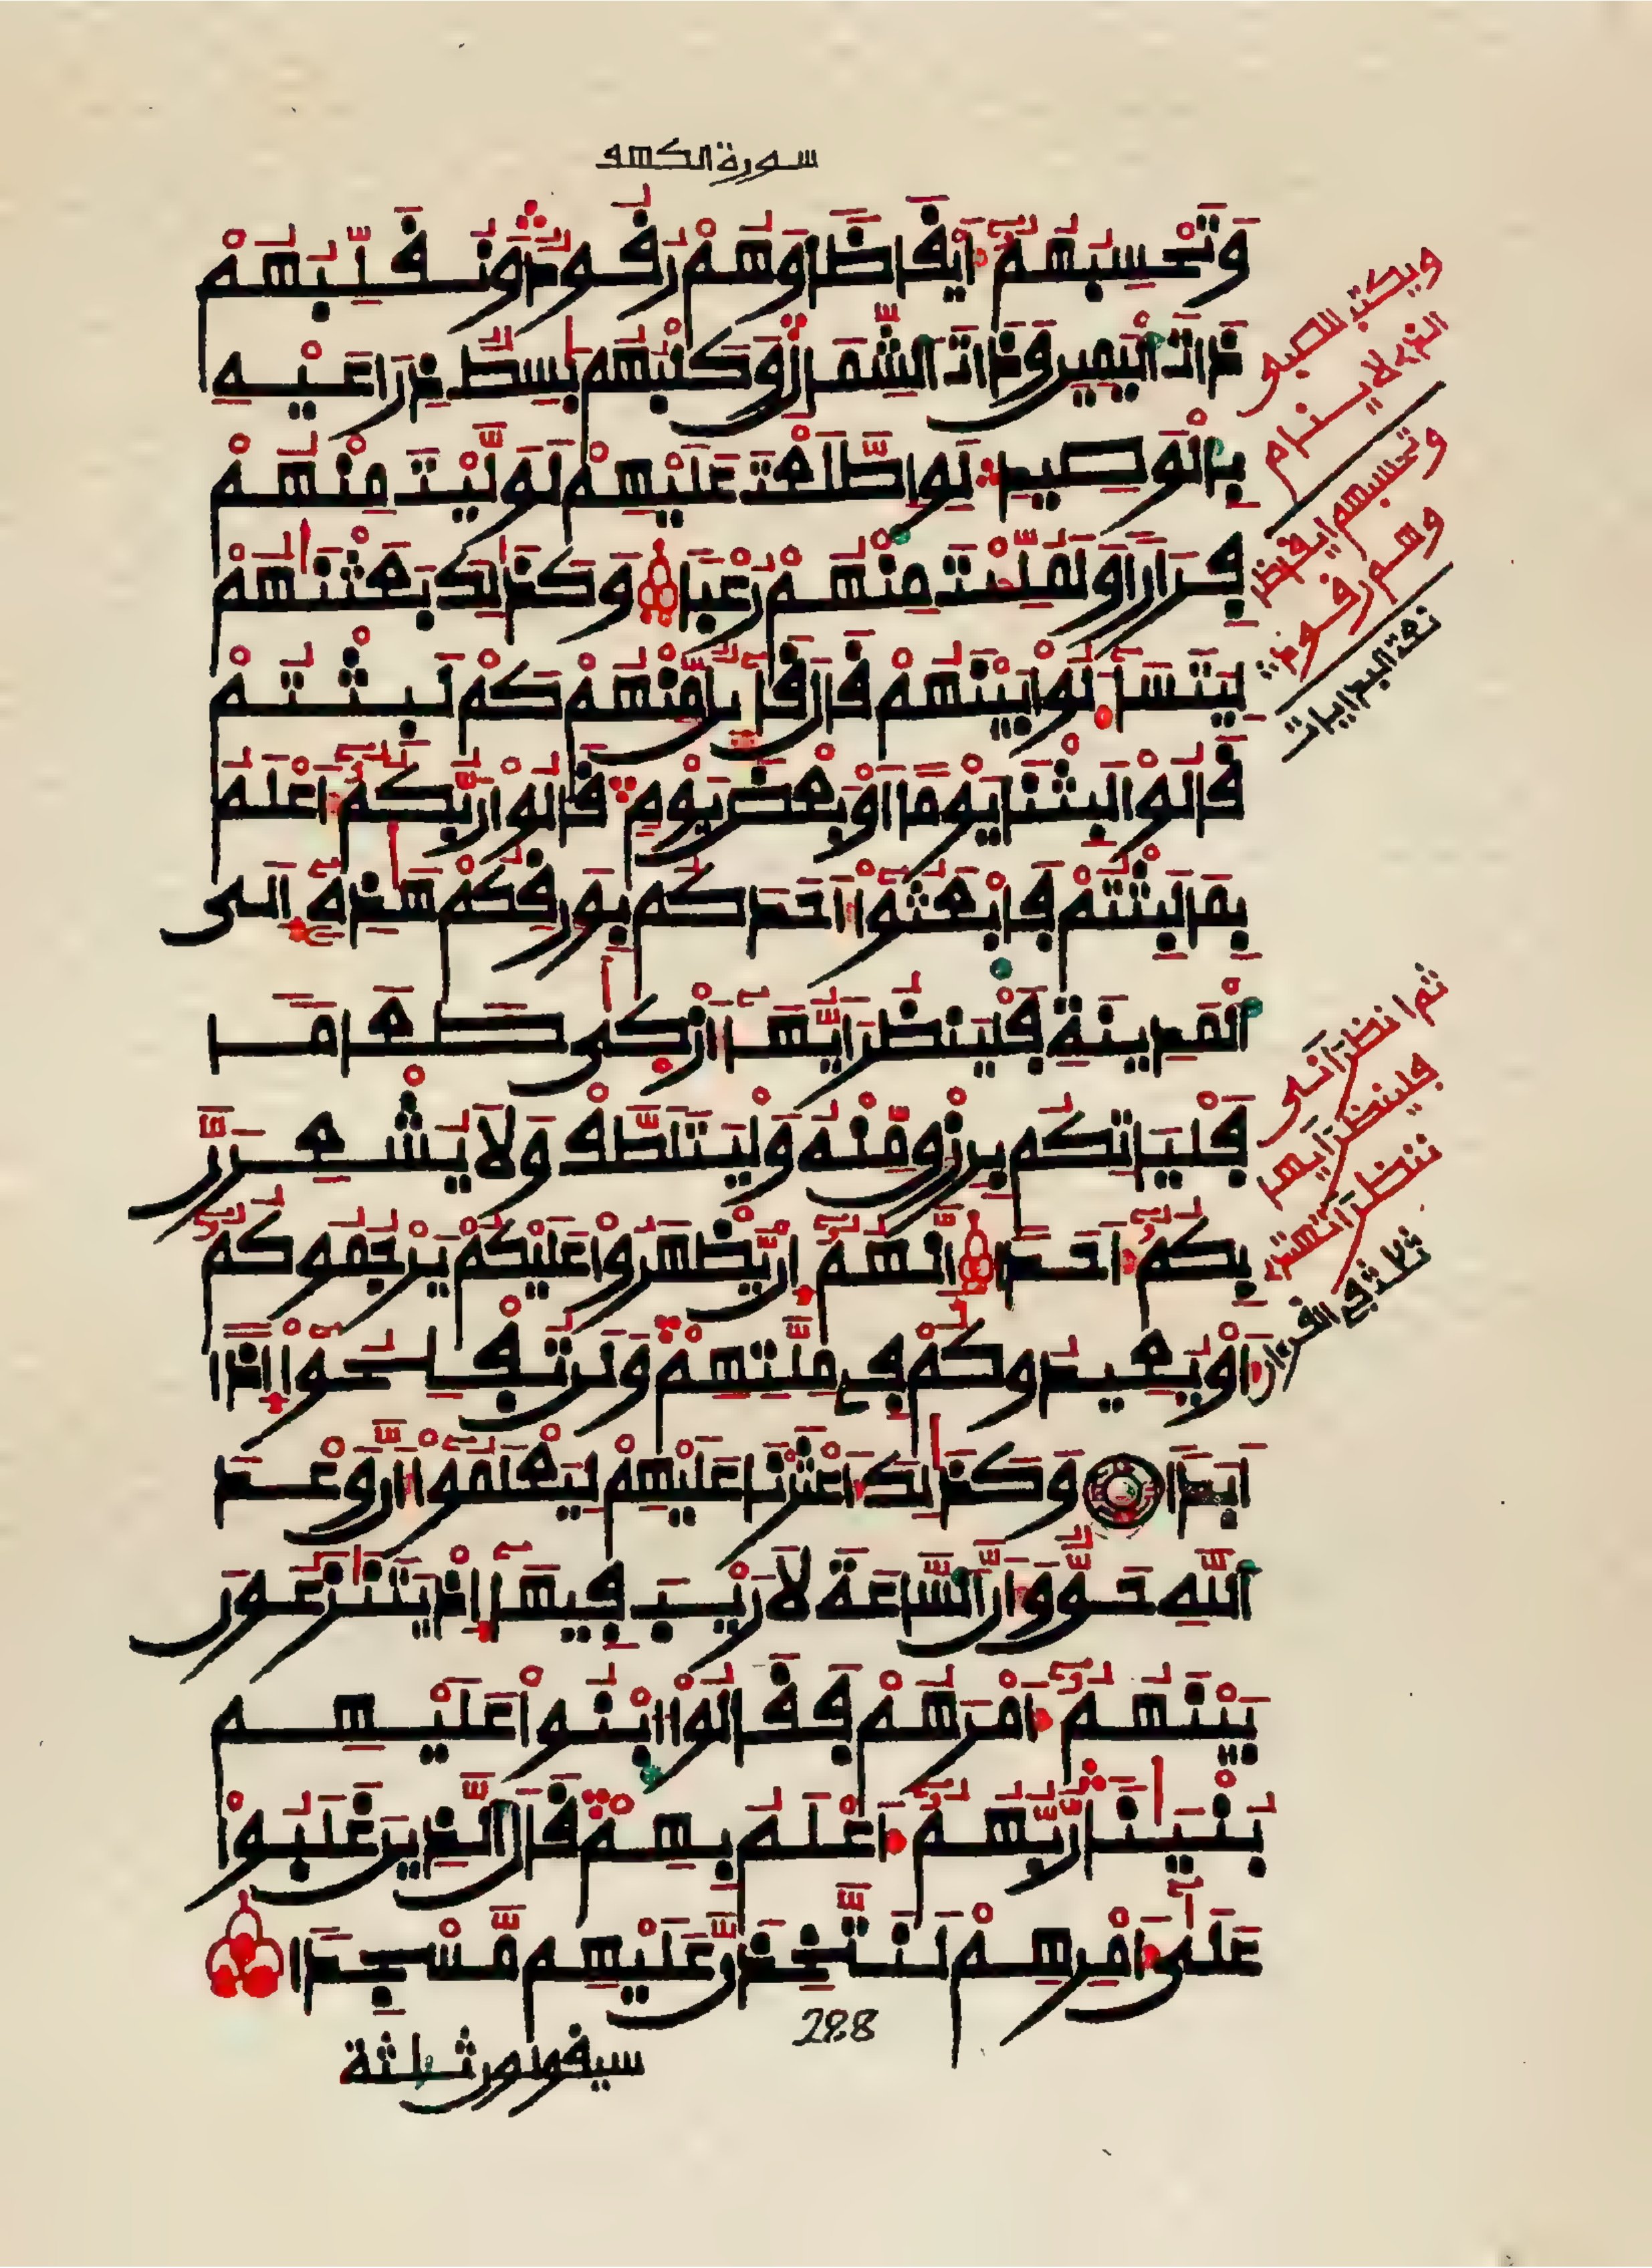 سورة الكهف
وَتَحْسِبُهُمُۥٓ أَيْقَاظًا وَهُمْ رُقُودٌ وَنُقَلِّبُهُمْ
ذَاتَ ٱلْيَمِينِ وَذَاتَ ٱلشِّمَالِ وَكَلْبُهُم بَٰسِطٌ ذِرَاعَيْهِ
بِالْوَصِيدِ لَوِ اِطَّلَعْتَ عَلَيْهِمْ لَوَلَّيْتَ مِنْهُمْ
فِرَارًا وَلَمُلِّئْتَ مِنْهُمْ رُعْبًا وَكَذَٰلِكَ بَعَثْنَٰهُمْ
لِيَتَسَآءَلُوا بَيْنَهُمْ قَالَ قَآئِلٌ مِّنْهُمْ كَمْ لَبِثْتُمْ
قَالُوا لَبِثْنَا يَوْمًا أَوْ بَعْضَ يَوْمٍ قَالُوا رَبُّكُمُۥٓ أَعْلَمُ
بِمَا لَبِثْتُمْ فَابْعَثُوٓا أَحَدَكُم بِوَرِقِكُمْ هَٰذِهِۦٓ إِلَى
ٱلْمَدِينَةِ فَلْيَنظُرَ اَيُّهَآ أَزْكَىٰ طَعَامًا
فَلْيَاتِكُم بِرِزْقٍ مِّنْهُ وَلْيَتَلَطَّفْ وَلَا يُشْعِرَنَّ
بِكُمُۥٓ أَحَدًا إِنَّهُمُۥٓ إِن يَّظْهَرُوا عَلَيْكُمْ يَرْجُمُوكُمُۥٓ
أَوْ يُعِيدُوكُمْ فِى مِلَّتِهِمْ وَلَن تُفْلِحُوٓا إِذًا
أَبَدًا وَكَذَٰلِكَ أَعْثَرْنَا عَلَيْهِمْ لِيَعْلَمُوٓا أَنَّ وَعْدَ
ٱللَّهِ حَقٌّ وَأَنَّ ٱلسَّاعَةَ لَا رَيْبَ فِيهَآ إِذْ يَتَنَٰزَعُونَ
بَيْنَهُمُۥٓ أَمْرَهُمْ فَقَالُوا ابْنُوا عَلَيْهِم
بُنْيَٰنًا رَّبُّهُمُۥٓ أَعْلَمُ بِهِمْ قَالَ ٱلَّذِينَ غَلَبُوا
عَلَىٰٓ أَمْرِهِمْ لَنَتَّخِذَنَّ عَلَيْهِم مَّسْجِدًا
288
سيقولون ثلثة
ويكتب للصبى
الذى لا ينام
وتحسبهم ايقاظا
وهم رقود
ثم انظر انى
فلينظر ايها
ننظر اتهتدى